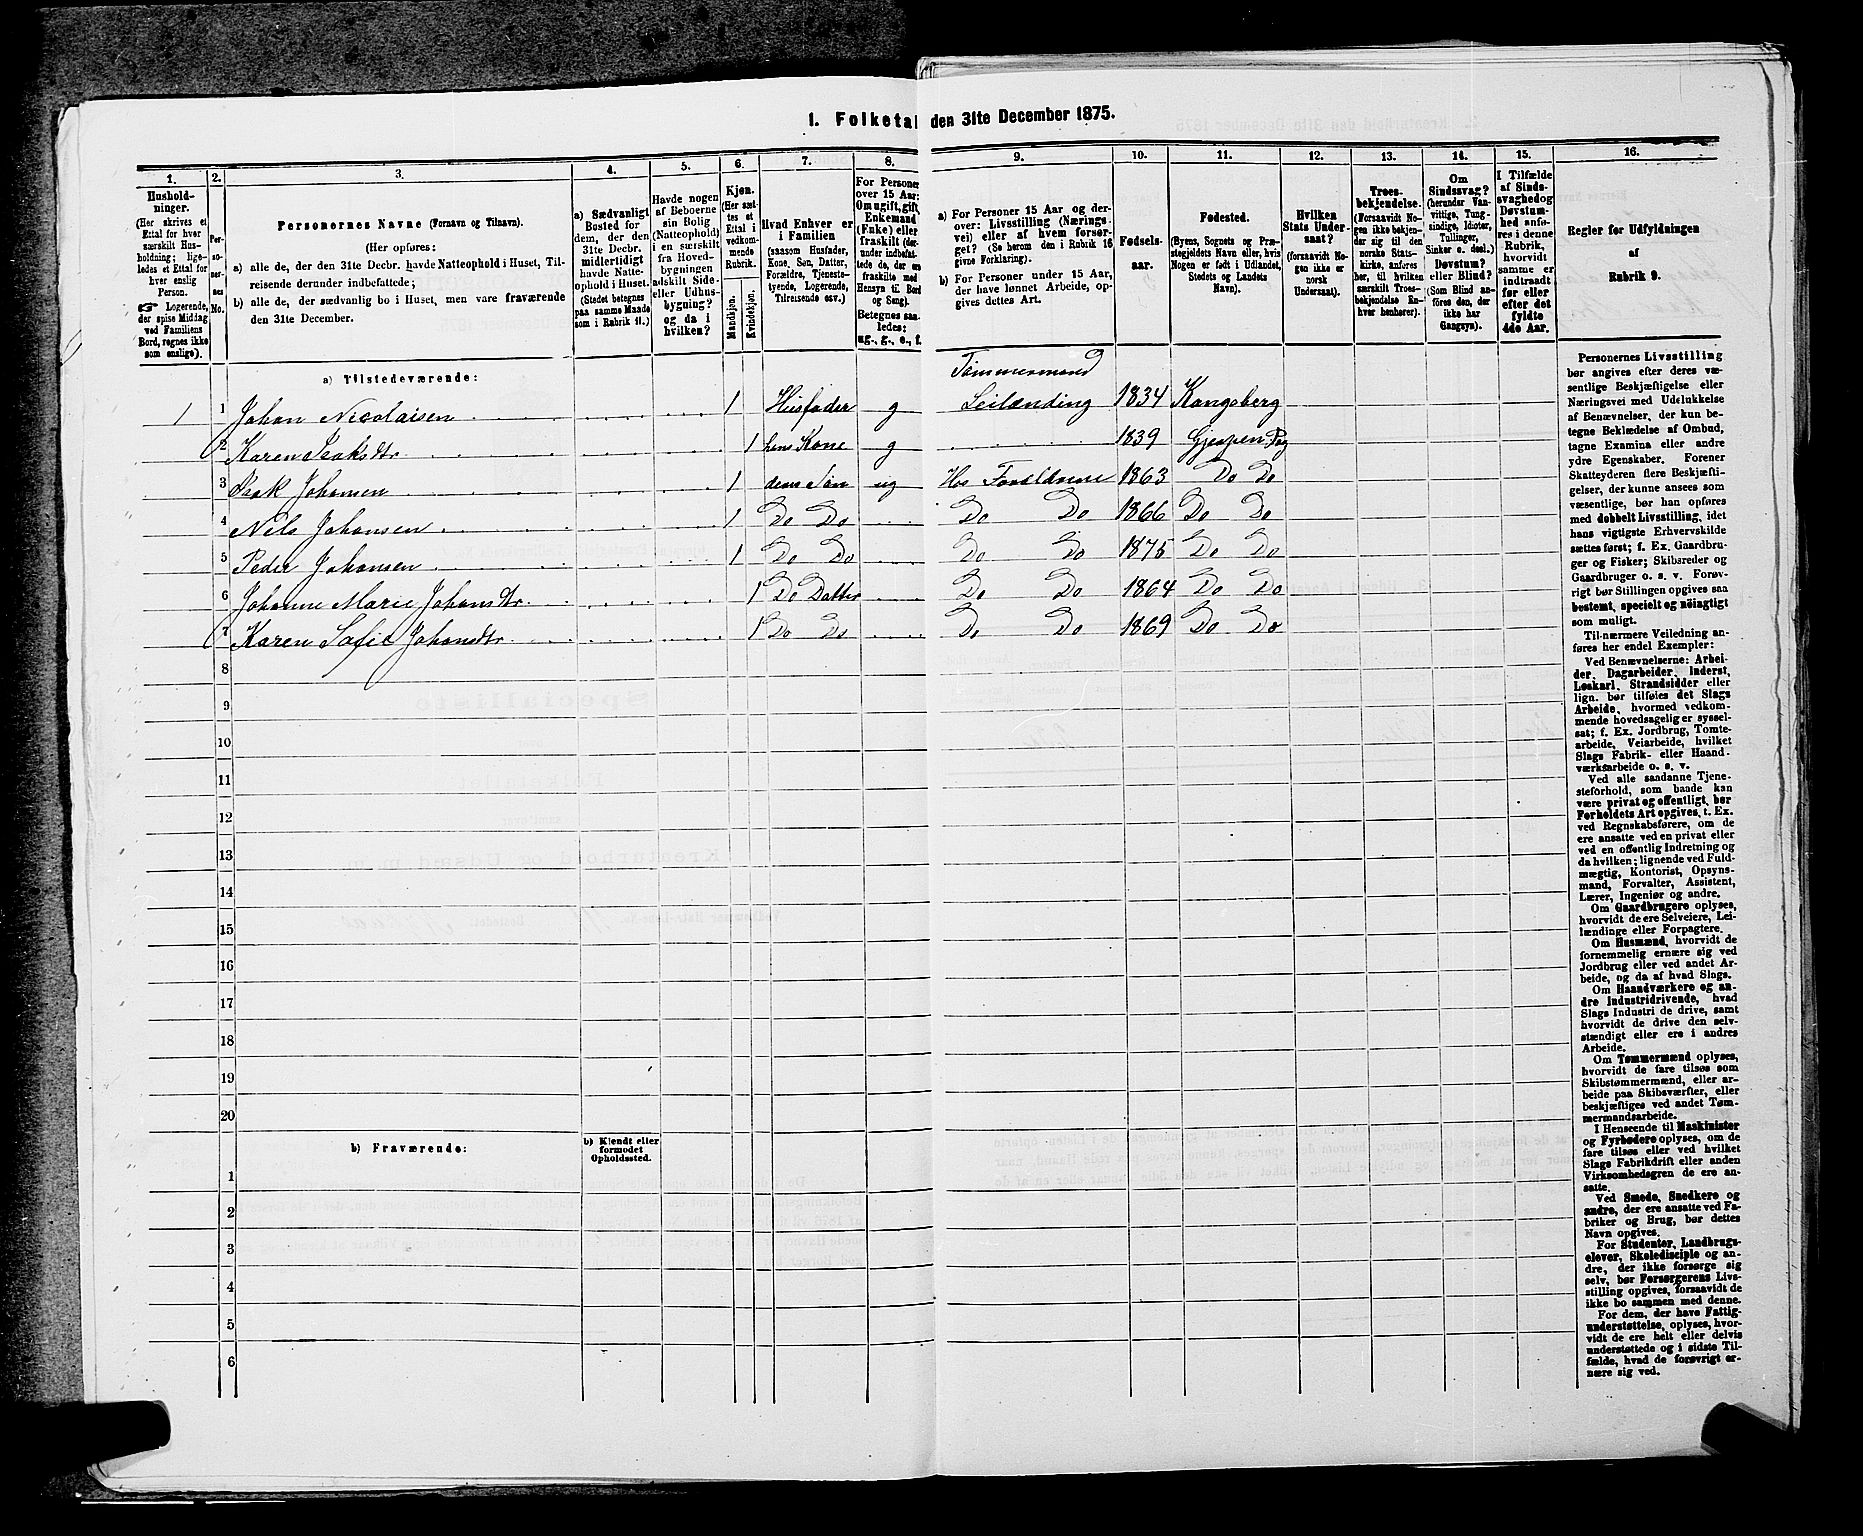 1. Folketal den 31te December 1875.
1.
Hushold-
ninger.
(Her skrives et
Ettal for hver
særskilt Hus-
holdning; lige-
ledes et Ettal for
hver enslig
Person.
☞ Logerende,
der spise Middag
ved Familiens
Bord, regnes ikke
som enslige).
2.
Per-
so-
ner-
nes
No.
3.
Personernes Navne (Fornavn og Tilnavn).
(Her opføres:
a) alle de, der den 31te Decbr. havde Natteophold i Huset, Til-
reisende derunder indbefattede;
b) alle de, der sædvanlig bo i Huset, men vare fraværende
den 31te December.
4.
a) Sædvanligt
Bosted for
dem, der den
31te Decbr.
midlertidigt
havde Natte-
ophold i Huset.
(Stedet betegnes
paa samme Maade
som i Rubrik 11.)
5.
Havde nogen
af Beboerne
sin Bolig
(Natteophold)
i en særskilt
fra Hoved-
bygningen
adskilt Side-
eller Udhus-
bygning?
og da i
hvilken?
6.
Kjøn.
(Her sæt-
tes et
Ettal i
vedkom-
mende
Rubrik.
Mandkjøn.
Kvindekjøn.
7.
Hvad Enhver er
i Familien
(saasom Husfader,
Kone, Søn, Datter,
Forældre, Tjeneste-
tyende, Logerende,
Tilreisende osv.)
8.
For Personer
over 15 Aar:
Om ugift, gift,
Enkemand
(Enke) eller
fraskilt (der-
under indbefat-
tede de, der ere
fraskilte med
Hensyn til Bord
og Seng).
Betegnes saa-
ledes:
ug., g., e., f.
9.
a) For Personer 15 Aar og der-
over: Livsstilling (Nærings-
vei) eller af hvem forsør-
get? (Se herom den i Rubrik 16
givne Forklaring).
b) For Personer under 15 Aar,
der have lønnet Arbeide, op-
gives dettes Art.
10.
Fødsels-
aar.
11.
Fødested.
(Byens, Sognets og Præ-
stegjeldets Navn eller, hvis
Nogen er født i Udlandet,
Stedets og Landets
Navn).
12.
Hvilken
Stats Under-
saat?
(forsaavidt No-
gen ikke er
norsk
Undersaat).
13.
Troes-
bekjendelse.
(Forsaavidt No-
gen ikke bekjen-
der sig til den
norske Stats-
kirke, anføres
her, til hvilken
særskilt Troes-
bekjendelse En-
hver henhører).
14.
Om
Sindssvag?
(herunder Van-
vittige, Tung-
sindige, Idioter,
Tullinger,
Sinker o. desl.)
Døvstum?
eller Blind?
(Som Blind an-
føres den, der
ikke har
Gangsyn).
15.
I Tilfælde
af Sinds-
svaghed og
Døvstum-
hed anfø-
res i denne
Rubrik,
hvorvidt
samme er
indtraadt
før eller
efter det
fyldte
4de Aar.
16.
Regler for Udfyldningen
af
Rubrik 9.
a) Tilstedeværende:
Tømmermand
1 1 Johan Nicolaisen 1 Husfader g Leilænding 1834 Kongsberg
2 Karen Isaksdtr 1 hans Kone g 1839 Gjerpen Pg
3 Isak Johansen 1 deres Søn ug Hos Forældrene 1863 Do Do
4 Nils Johansen 1 Do Do Do Do 1866 Do Do
5 Peder Johansen 1 Do Do Do Do 1875 Do Do
6 Johanne Marie Johansdtr 1 Do Datter Do Do 1864 Do Do
7 Karen Sofie Johansdtr 1 Do Do Do Do 1869 Do Do
8
9
10
11
12
13
14
15
16
17
18
19
20
b) Fraværende:
b) Kjendt eller
formodet
Opholdssted.
1
2
3
4
5
6
Personernes Livsstilling
bør angives efter deres væ-
sentlige Beskjæftigelse eller
Næringsvei med Udelukkelse
af Benævnelser, der kun be-
tegne Beklædelse af Ombud,
tagne Examina eller andre
ydre Egenskaber. Forener
Skatteyderen flere Beskjæfti-
gelser, der kunne ansees som
væsentlige, bør han opføres
med dobbelt Livsstilling, idet
hans vigtigste Erhvervskilde
sættes først; f. Ex. Gaardbru-
ger og Fisker; Skibsreder og
Gaardbruger o. s. v. Forøv-
rigt bør Stillingen opgives saa
bestemt, specielt og nöiagtigt
som muligt.
Til nærmere Veiledning an-
føres her endel Exempler:
Ved Benævnelserne: Arbei-
der, Dagarbeider, Inderst,
Løskarl, Strandsidder eller
lign. bør tilføies det Slags
Arbeide, hvormed vedkom-
mende hovedsagelig er syssel-
sat; f. Ex. Jordbrug, Tomte-
arbeide, Veiarbeide, hvilket
Slags Fabrik- eller Haand-
værksarbeide o. s. v.
Ved alle saadanne Tjene-
steforhold, som baade kan
være privat og offentligt, bør
Forholdets Art opgives, t. Ex.
ved Regnskabsførere, om de
ere ansatte ved en privat eller
ved en offentlig Indretning og
da hvilken; lignende ved Fuld-
mægtig, Kontorist, Opsyns-
mand, Forvalter, Assistent,
Lærer, Ingeniør og andre.
Om Gaardbrugere oplyses,
hvorvidt de ere Selveiere, Lei-
lændinge eller Forpagtere.
Om Husmænd, hvorvidt de
fornemmelig ernære sig ved
Jordbrug eller ved andet Ar-
beide, og da af hvad Slags.
Om Haandværkere og an-
dre Industridrivende, hvad
Slags Industri de drive, samt
hvorvidt de drive den selv-
stændigt eller ere i andres
Arbeide.
Om Tømmermænd oplyses,
hvorvidt de fare tilsøs som
Skibstømmermænd, eller ar-
beide paa Skibsværfter, eller
beskjæftiges ved andet Tøm-
mermandsarbeide.
I Henseende til Maskinister
og Fyrbødere oplyses, om de
fare tilsøs eller ved hvilket
Slags Fabrikdrift eller anden
Virksomhedsgren de ere an-
satte.
Ved Smede, Snedkere og
andre, der ere ansatte ved Fa-
briker og Brug, bør dettes
Navn opgives.
For Studenter, Landbrugs-
elever, Skoledisciple og an-
dre, der ikke forsørge sig
selv, bør Forsørgerens Livs-
stilling opgives, forsaavidt de
ikke bo sammen med denne.
For dem, der have Fattig-
understøttelse, oplyses, hvor-
vidt de ere helt eller delvis
understøttede og i sidste Til-
fælde, hvad de forøvrigt er-
nære sig ved.